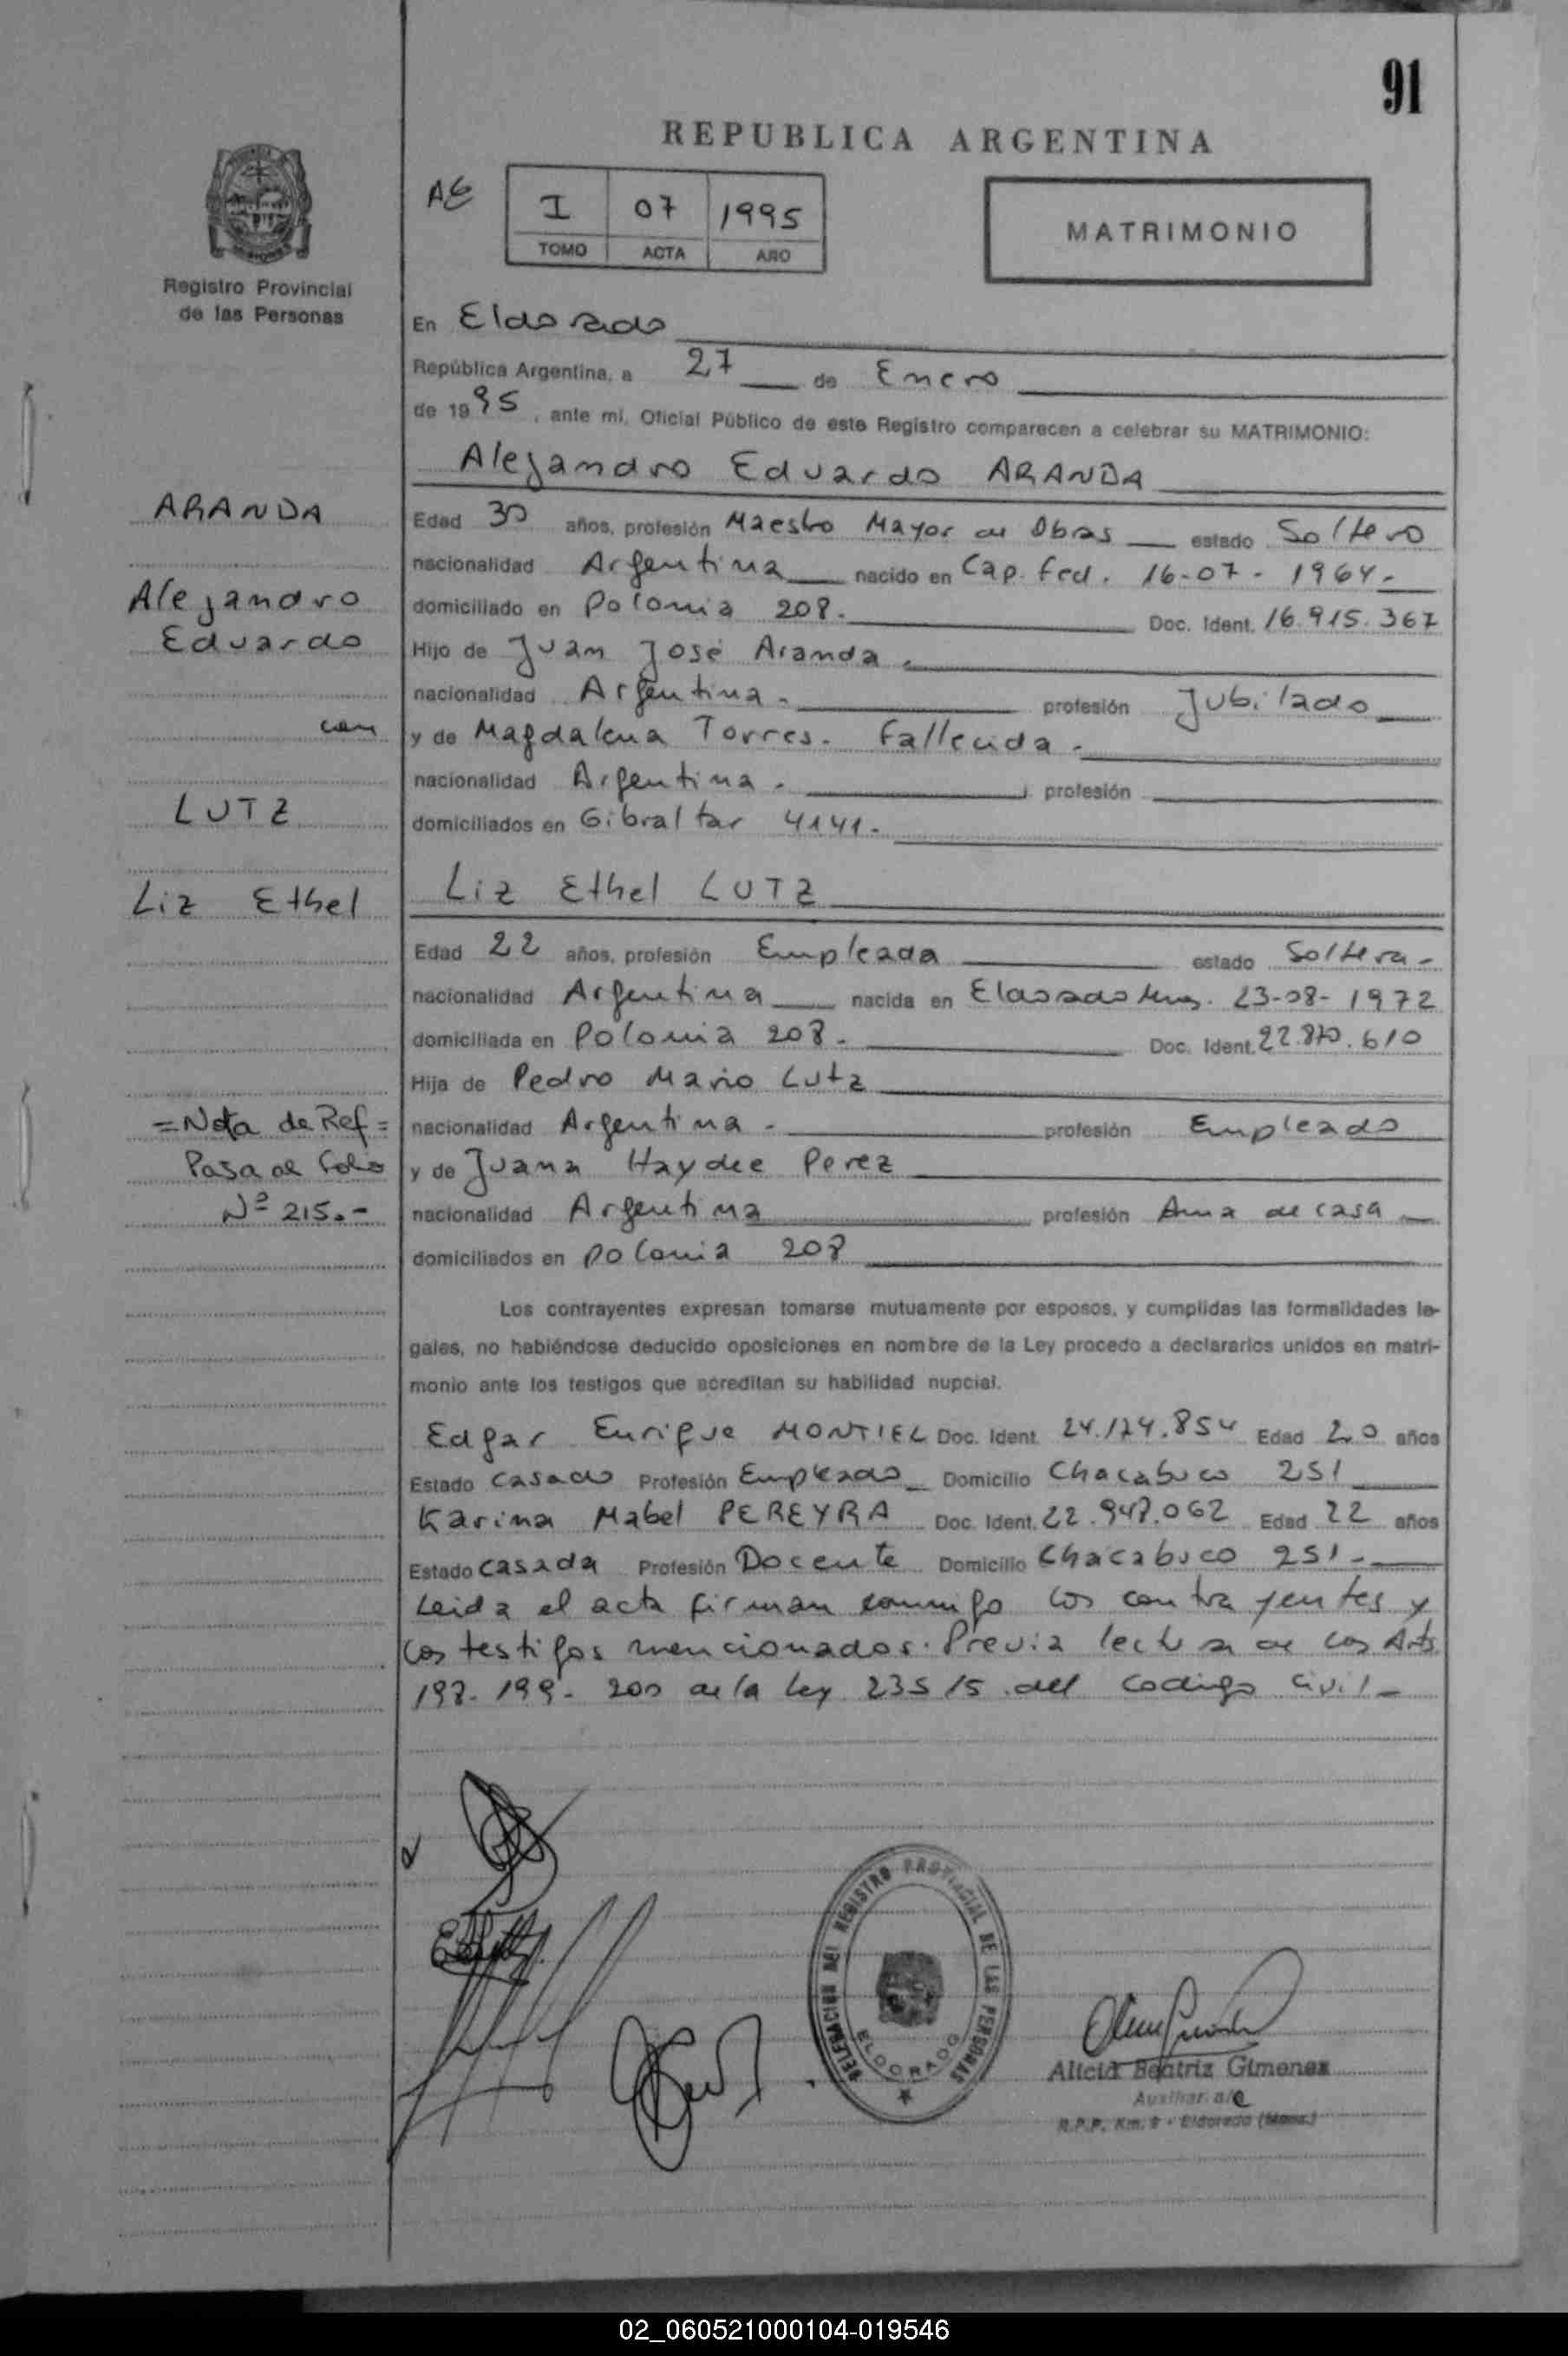 91
REPUBLICA ARGENTINA
AE
I 07 1995
TOMO ACTA AÑO
MATRIMONIO
Registro Provincial
de las Personas
En Eldorado
República Argentina, a 27 de Enero
de 1995, ante mí, Oficial Público de este Registro comparecen a celebrar su MATRIMONIO:
Alejandro Eduardo ARANDA
ARANDA
Alejandro
Eduardo
con
LUTZ
Liz Ethel
=Nota de Ref=
Pasa al folio
Nº 215.-
Edad 30 años, profesión Maestro Mayor de Obras estado Soltero
nacionalidad Argentina nacido en Cap. Fed. 16-07-1964-
domiciliado en Polonia 208.- Doc. Ident. 16.915.367
Hijo de Juan José Aranda.
nacionalidad Argentina - profesión Jubilado
y de Magdalena Torres. Fallecida.
nacionalidad Argentina. profesión
domiciliados en Gibraltar 4141.
Liz Ethel LUTZ
Edad 22 años, profesión Empleada estado Soltera-
nacionalidad Argentina nacida en Eldorado Mnes. 23-08-1972
domiciliada en Polonia 208. Doc. Ident. 22.870.610
Hija de Pedro Mario Lutz
nacionalidad Argentina - profesión Empleado
y de Juana Haydee Perez
nacionalidad Argentina profesión Ama de casa
domiciliados en Polonia 208
Los contrayentes expresan tomarse mutuamente por esposos, y cumplidas las formalidades le-
gales, no habiéndose deducido oposiciones en nombre de la Ley procedo a declararlos unidos en matri-
monio ante los testigos que acreditan su habilidad nupcial.
Edgar Enrique MONTIEL Doc. Ident. 24.124.854 Edad 20 años
Estado Casado Profesión Empleado Domicilio Chacabuco 251
Karina Mabel PEREYRA Doc. Ident. 22.947.062 Edad 22 años
Estado Casada Profesión Docente Domicilio Chacabuco 251-
Leida el acta firman conmigo los contrayentes y
los testigos mencionados. Previa lectura de los Arts
198-199-200 de la Ley 23515 del codigo civil-
DELEGACIÓN DEL REGISTRO PROVINCIAL DE LAS PERSONAS
ELDORADO
Alicia Beatriz Gimenez
Auxiliar a/c
R.P.P. Km. 9 - Eldorado (Mnes.)
02_060521000104-019546